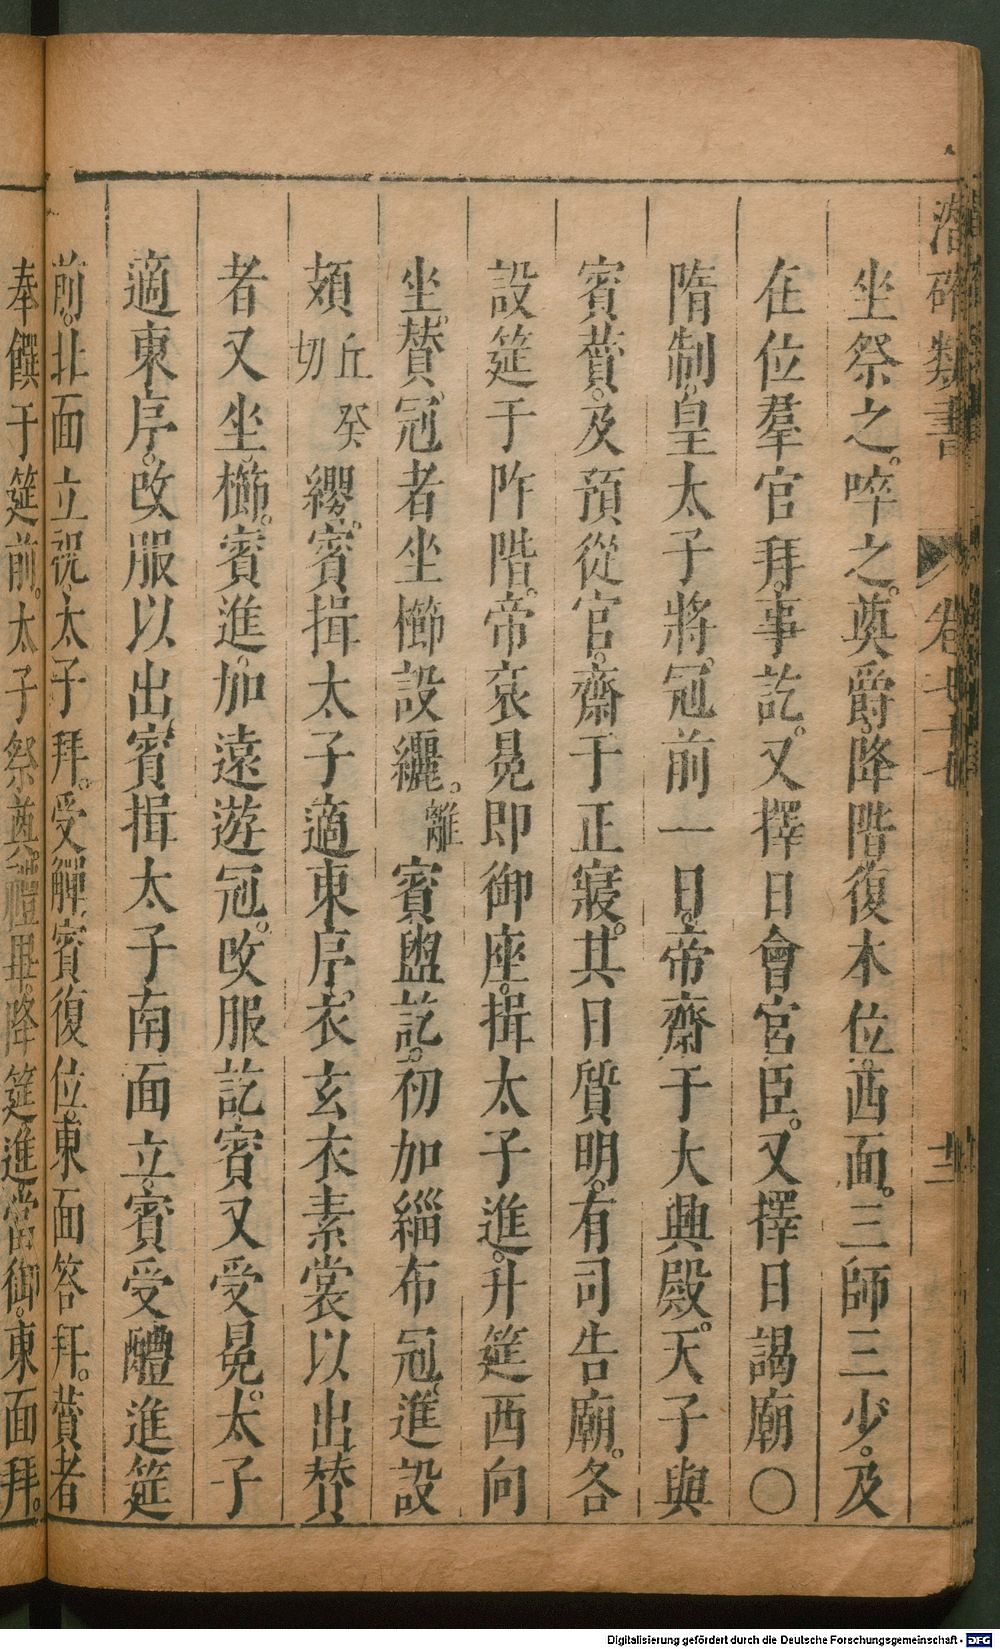 潛確類書 卷七十七 十二
坐祭之。啐之。奠爵。降階復本位。西面。三師三少。及
在位羣官拜。事訖。又擇日會宮臣。又擇日謁廟〇
隋制。皇太子將冠。前一日。帝齋于大興殿。天子與
賓贊。及預從官。齋于正寢。其日質明。有司告廟。各
設筵于阼階。帝袞冕即御座。揖太子進。升筵西向
坐。贊冠者坐櫛設纚。離賓盥訖。初加緇布冠。進設
頍丘癸切纓。賓揖太子適東序。衣玄衣素裳以出。贊
者又坐櫛。賓進。加遠遊冠。改服訖。賓又受冕。太子
適東序。改服以出。賓揖太子南面立。賓受醴進筵
前。北面立祝。太子拜。受觶。賓復位。東面答拜。贊者
奉饌于筵前。太子祭奠。禮畢。降筵進當御。東面拜。
Digitalisierung gefördert durch die Deutsche Forschungsgemeinschaft - DFG